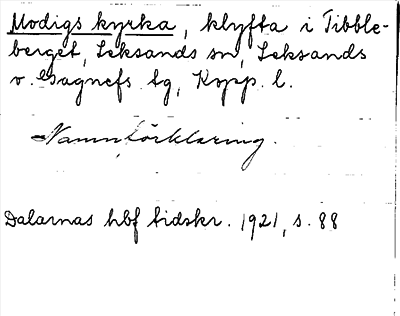 Modigs kyrka, klyfta i Tibble-
berget, Leksands sn, Leksands
o. Gagnefs tg, Kopp. l.
Namnförklaring.
Dalarnas hbf tidskr. 1921, s. 88